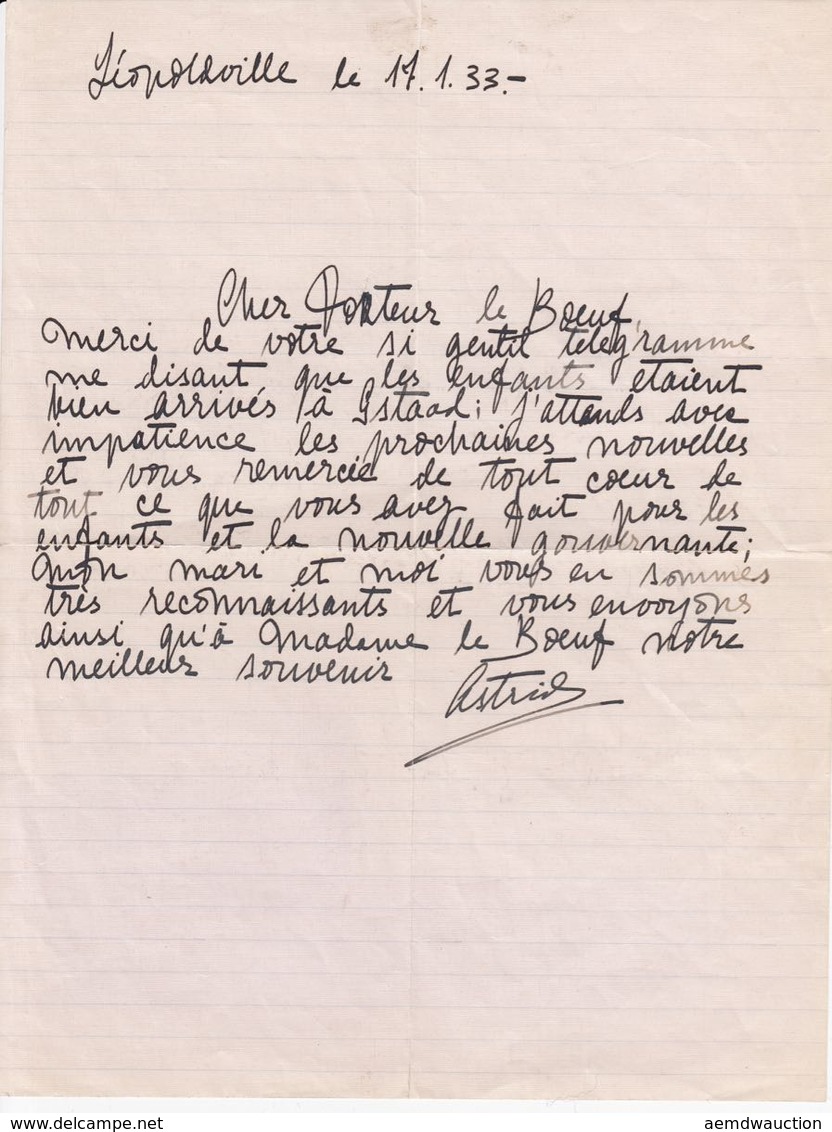 Léopoldville le 17.1.33.-
Cher Docteur le Boeuf,
Merci de votre si gentil télégramme
me disant que les enfants étaient
bien arrivés à Gstaad; j'attends avec
impatience les prochaines nouvelles
et vous remercie de tout coeur de
tout ce que vous avez fait pour les
enfants et la nouvelle gouvernante;
Mon mari et moi vous en sommes
très reconnaissants et vous envoyons
ainsi qu'à Madame le Boeuf notre
meilleur souvenir
Astrid
aemdwauction